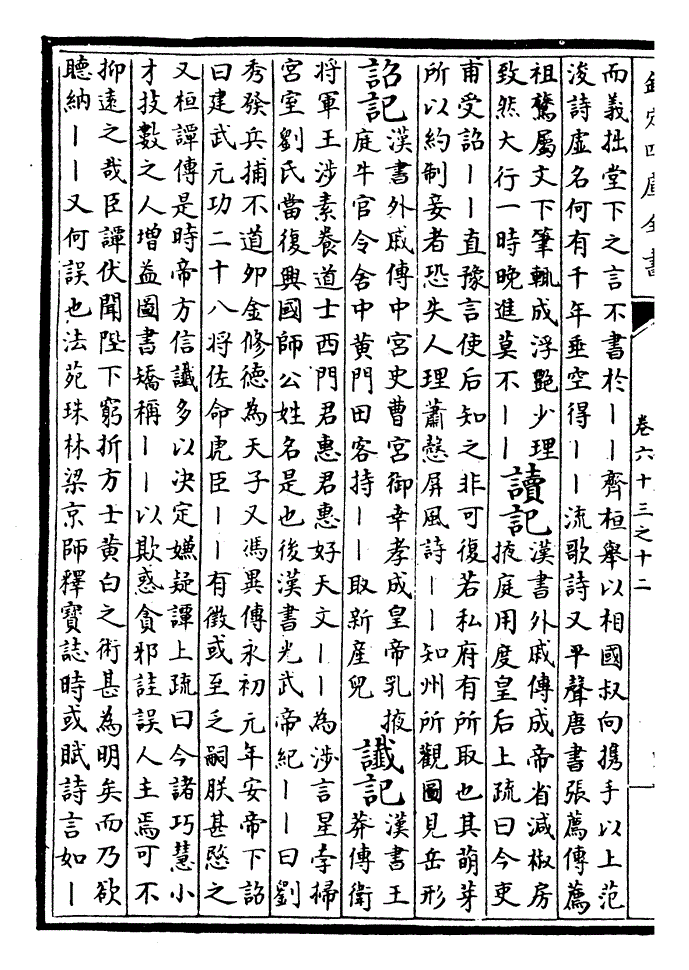 欽定四庫全書 卷六十三之十二
而義拙堂下之言不書於丨丨齊桓舉以相國叔向携手以上范
浚詩虛名何有千年垂空得丨丨流歌詩又平聲唐書張薦傳薦
祖鷟屬文下筆輒成浮艷少理
致然大行一時晚進莫不丨丨
讀記
漢書外戚傳成帝省減椒房
掖庭用度皇后上疏曰今吏
甫受詔丨丨直豫言使后知之非可復若私府有所取也其萌芽
所以約制妾者恐失人理蕭慤屏風詩丨丨知州所觀圖見岳形
詔記
漢書外戚傳中宮史曹宮御幸孝成皇帝乳掖
庭牛官令舍中黃門田客持丨丨取新產兒
讖記
漢書王
莽傳衛
將軍王涉素養道士西門君惠君惠好天文丨丨為涉言星孛掃
宮室劉氏當復興國師公姓名是也後漢書光武帝紀丨丨曰劉
秀發兵捕不道卯金修德為天子又馮異傳永初元年安帝下詔
曰建武元功二十八將佐命虎臣丨丨有徵或至乏嗣朕甚愍之
又桓譚傳是時帝方信讖多以決定嫌疑譚上疏曰今諸巧慧小
才技數之人增益圖書矯稱丨丨以欺惑貪邪詿誤人主焉可不
抑遠之哉臣譚伏聞陛下窮折方士黃白之術甚為明矣而乃欲
聽納丨丨又何誤也法苑珠林梁京師釋寶誌時或賦詩言如丨